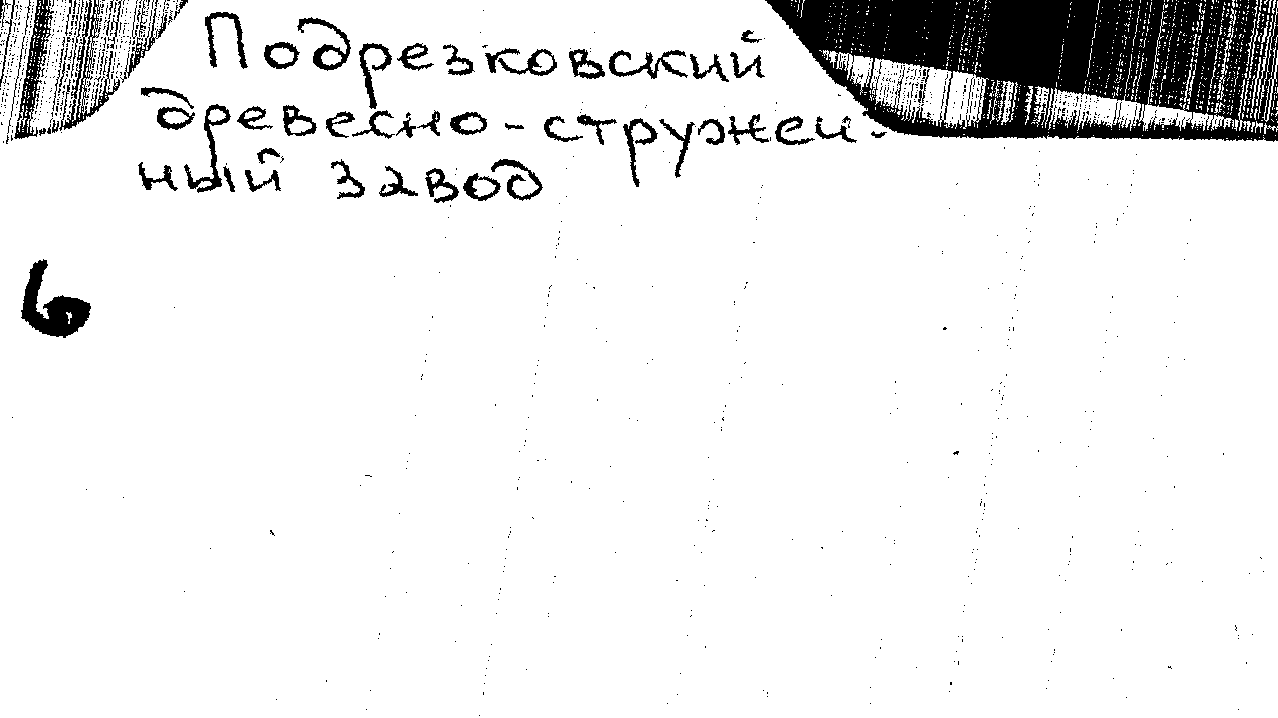 Подрезковский
древесно-стружеч-
ный завод
6